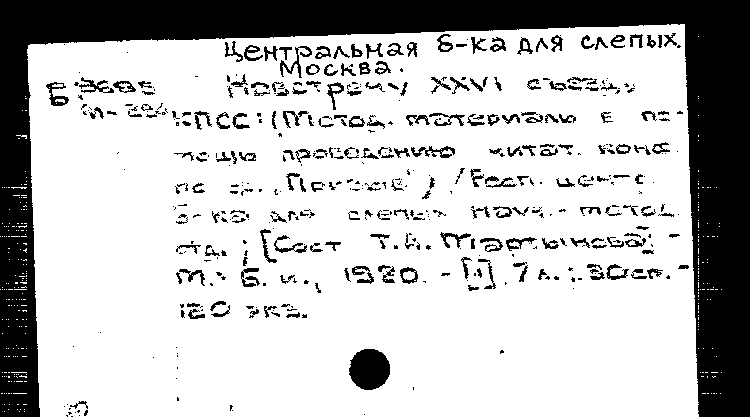 Центральная б-ка для слепых.
Москва.
Навстречу XXVI съезду
КПСС: (Метод. материалы в по-
мощь проведению читат. конф.
по
/ Респ. центр.
б-ка для слепых. Науч.-метод.
отд. ; [Сост. Т.А. Мартынова]. -
М.: Б. и., 1980. - [1], 7 л. ; 30 см. -
120 экз.